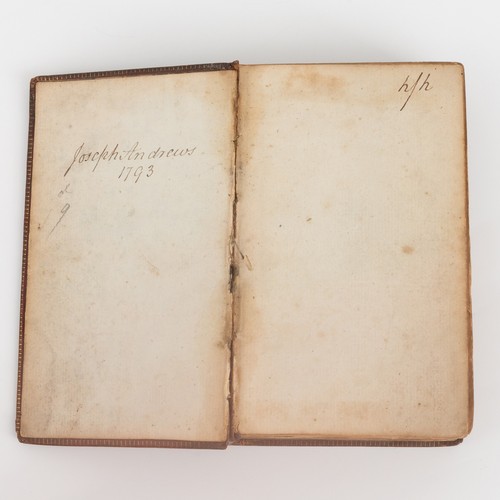 Joseph Andrews
1793
h/h